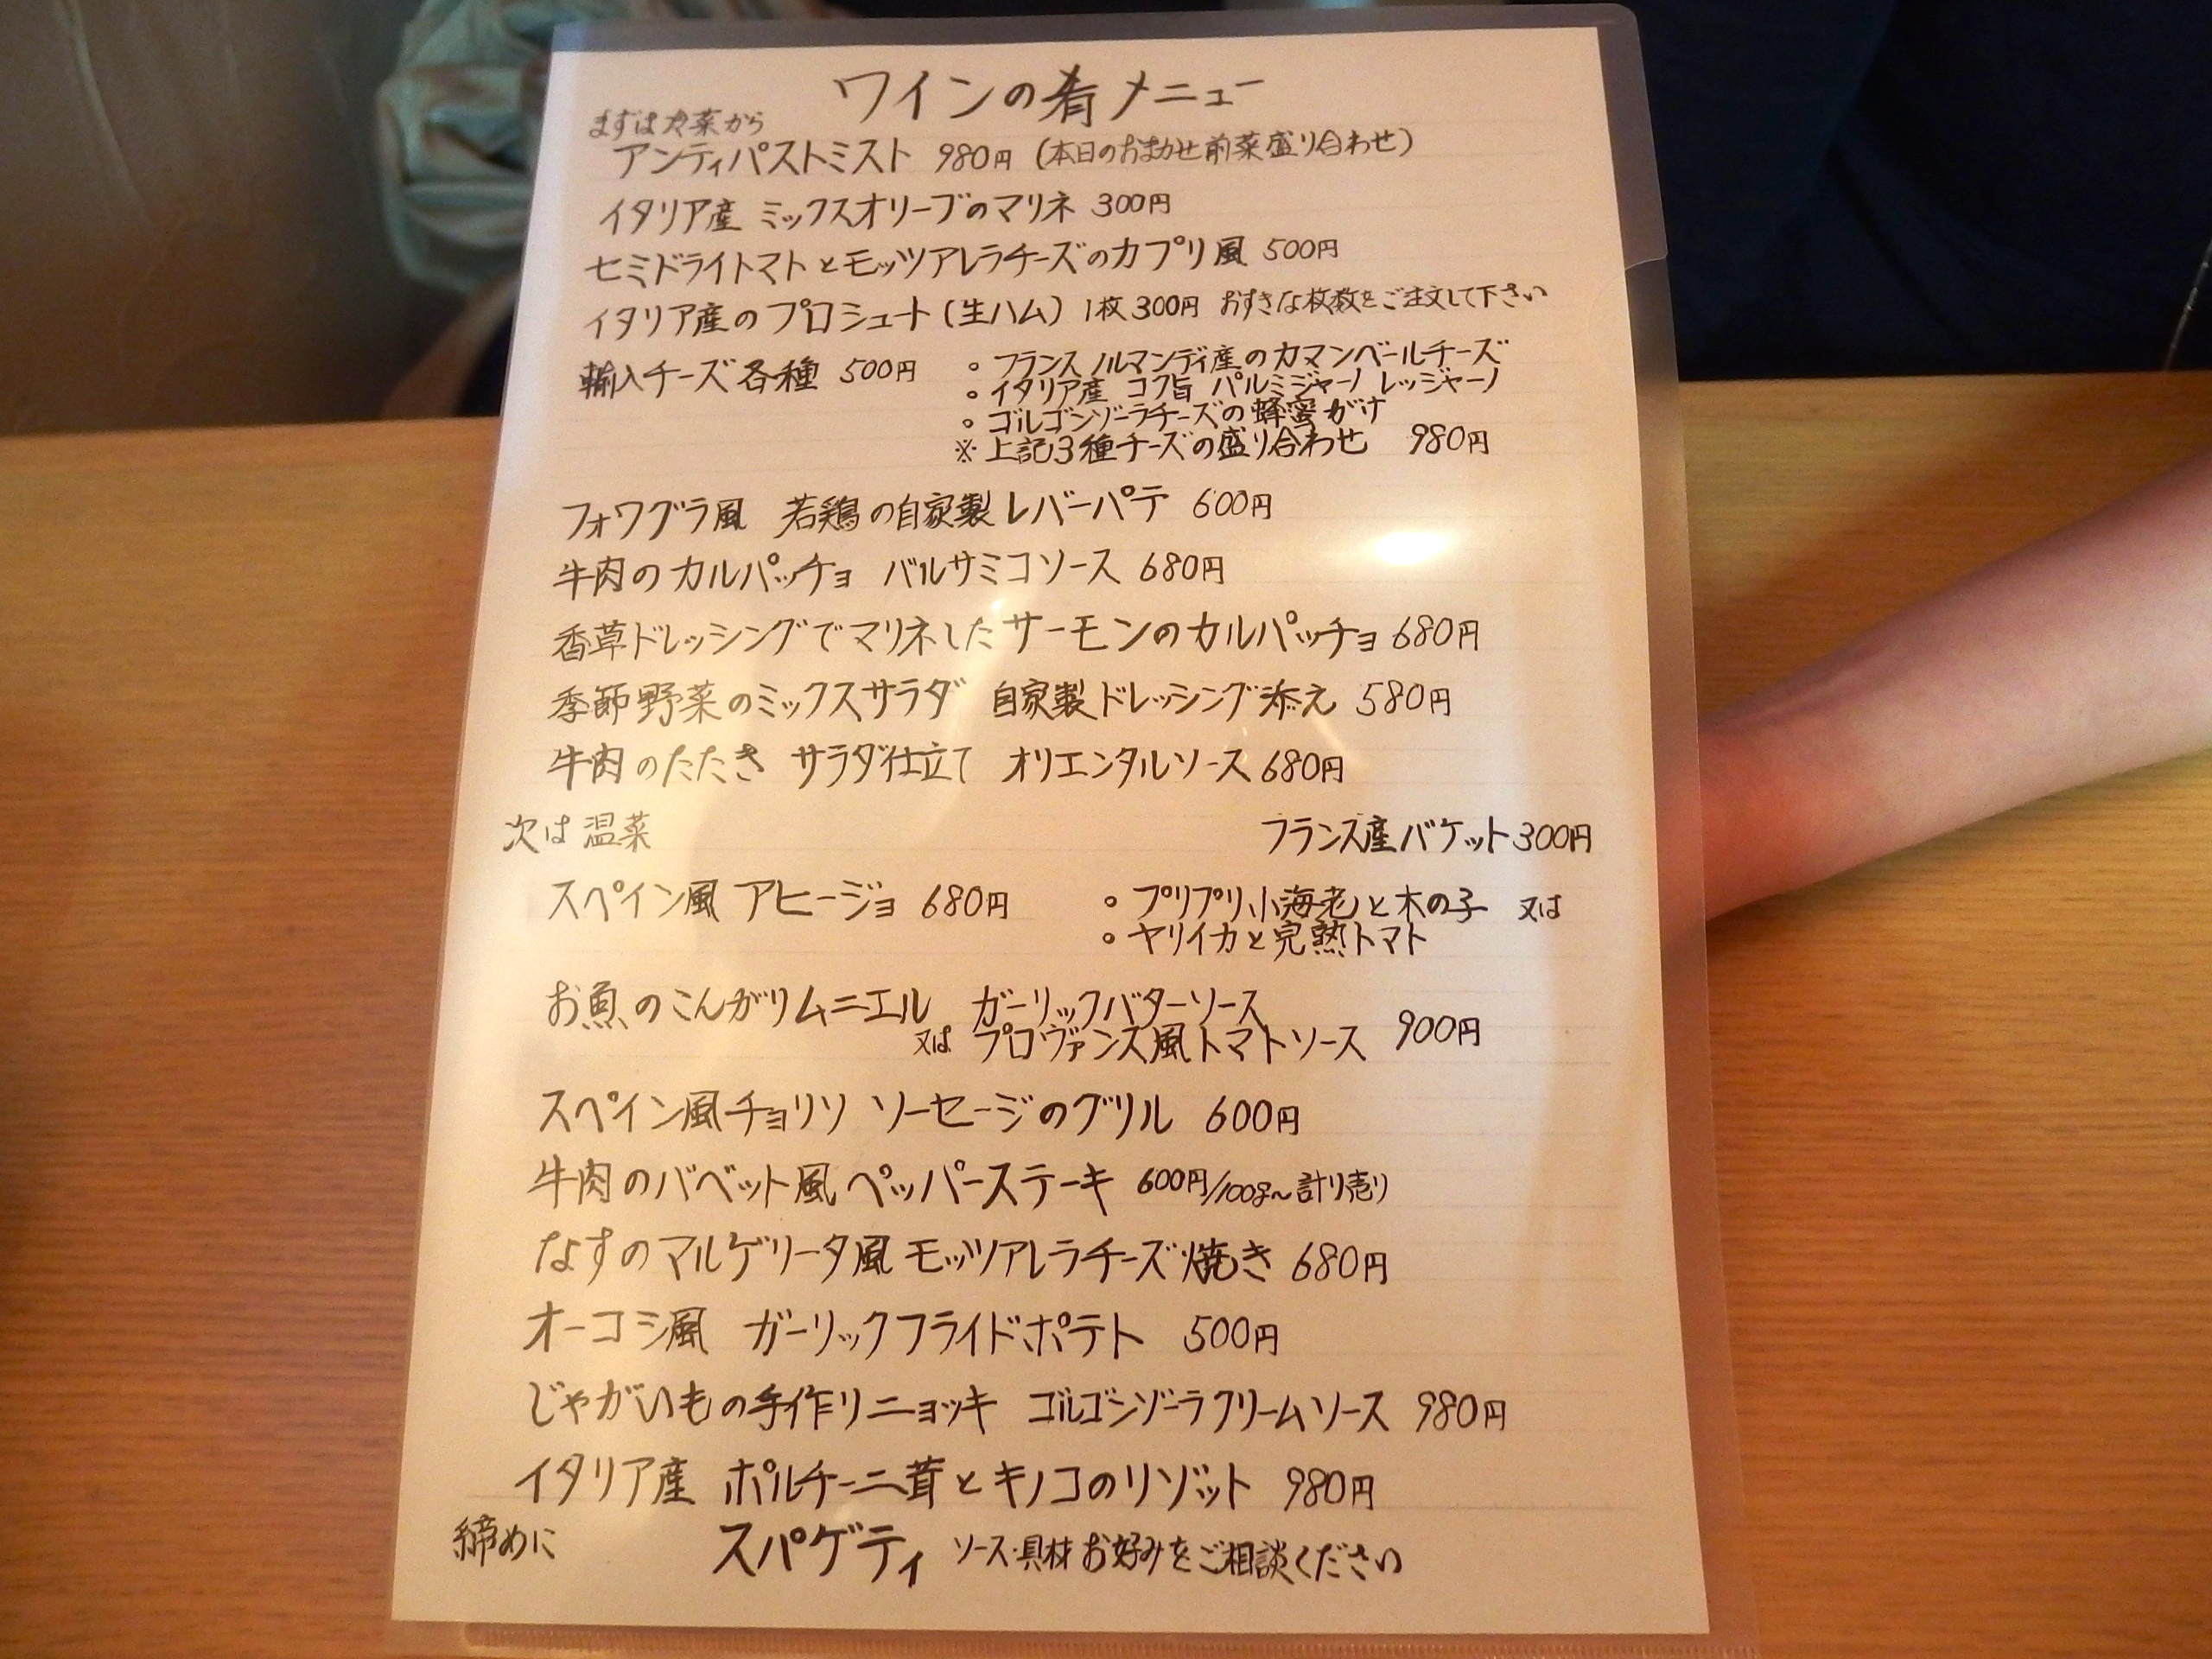 ワインの肴メニュー
まずは冷菜から
アンティパストミスト 980円 (本日のおまかせ前菜盛り合わせ)
イタリア産 ミックスオリーブのマリネ 300円
セミドライトマトとモッツアレラチーズのカプリ風 500円
イタリア産のプロシュート(生ハム) 1枚300円 おすきな枚数をご注文して下さい
輸入チーズ各種 500円 ○ フランス ノルマンディ産のカマンベールチーズ
○ イタリア産 コク旨 パルミジャーノ レッジャーノ
○ ゴルゴンゾーラチーズの蜂蜜がけ
※ 上記3種チーズの盛り合わせ 980円
フォワグラ風 若鶏の自家製レバーパテ 600円
牛肉のカルパッチョ バルサミコソース 680円
香草ドレッシングでマリネしたサーモンのカルパッチョ 680円
季節野菜のミックスサラダ 自家製ドレッシング添え 580円
牛肉のたたき サラダ仕立て オリエンタルソース 680円
次は温菜 フランス産バケット300円
スペイン風 アヒージョ 680円 ○ プリプリ小海老と木の子 又は
○ ヤリイカと完熟トマト
お魚のこんがりムニエル ガーリックバターソース
又は プロヴァンス風トマトソース 900円
スペイン風チョリソ ソーセージのグリル 600円
牛肉のバベット風 ペッパーステーキ 600円/100g〜計り売り
なすのマルゲリータ風 モッツアレラチーズ焼き 680円
オーコシ風 ガーリックフライドポテト 500円
じゃがいもの手作りニョッキ ゴルゴンゾーラクリームソース 980円
イタリア産 ポルチーニ茸とキノコのリゾット 980円
締めに スパゲティ ソース・具材 お好みをご相談ください